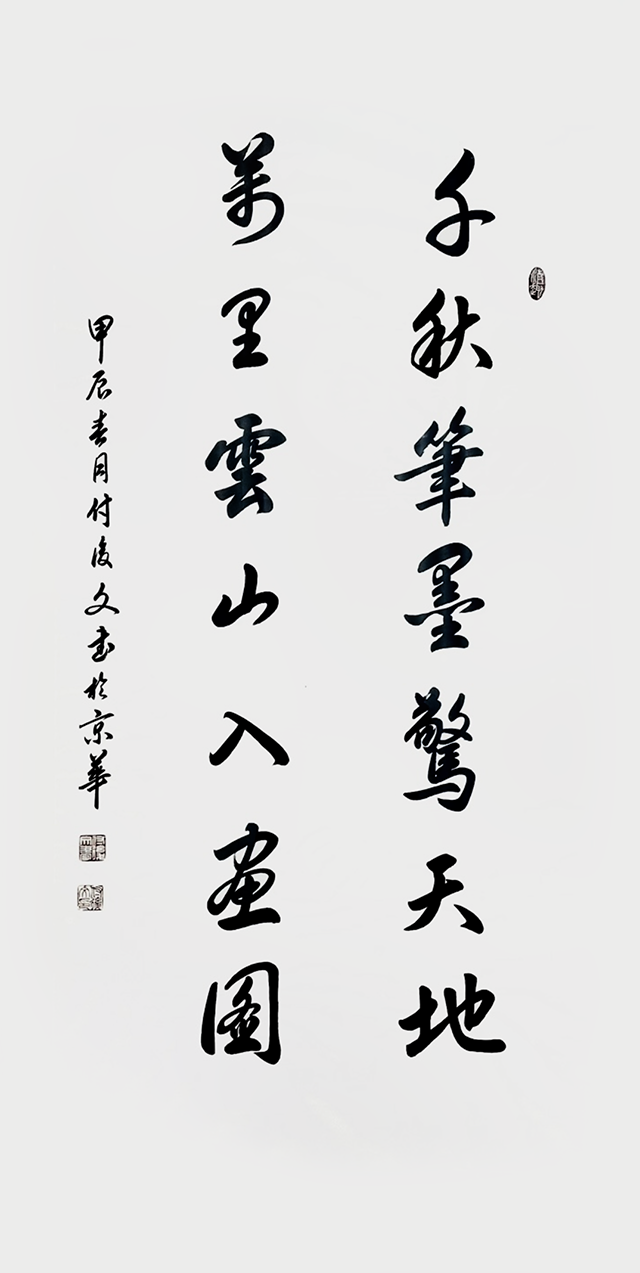 千秋筆墨驚天地
萬里雲山入畫圖
甲辰春月付俊文書於京華